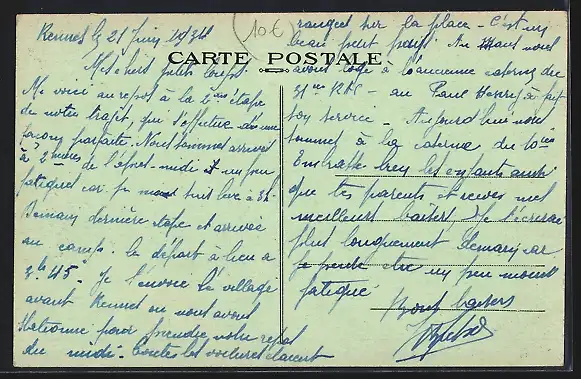 Rennes le 21 Juin 1934
10€
CARTE POSTALE
Mes chers petits loups.
Me voici au repos à la 2ème étape
de notre trajet, qui s'effectue d'une
façon parfaite. Nous sommes arrivés
à 2 heures de l'après-midi et un peu
fatigués car je me suis levé à 2h
Demain dernière étape et arrivée
au camp. Le départ à lieu à
3h 45. Je t'envoie le village
avant Rennes ou nous avons
stationné pour prendre notre repas
du midi. Toutes les voitures étaient
rangées sur la place - C'est un
beau petit pays. Au Mans nous
avons logé à l'ancienne caserne du
31ème RAC - au Paul Henry à fait
son service - Aujourd'hui nous
sommes à la caserne du 10ème
Embrasse bien les enfants ainsi
que tes parents et reçois mes
meilleurs baisers. Je t'écrirai
plus longuement demain car
je serai un peu moins
fatigué
Bons baisers